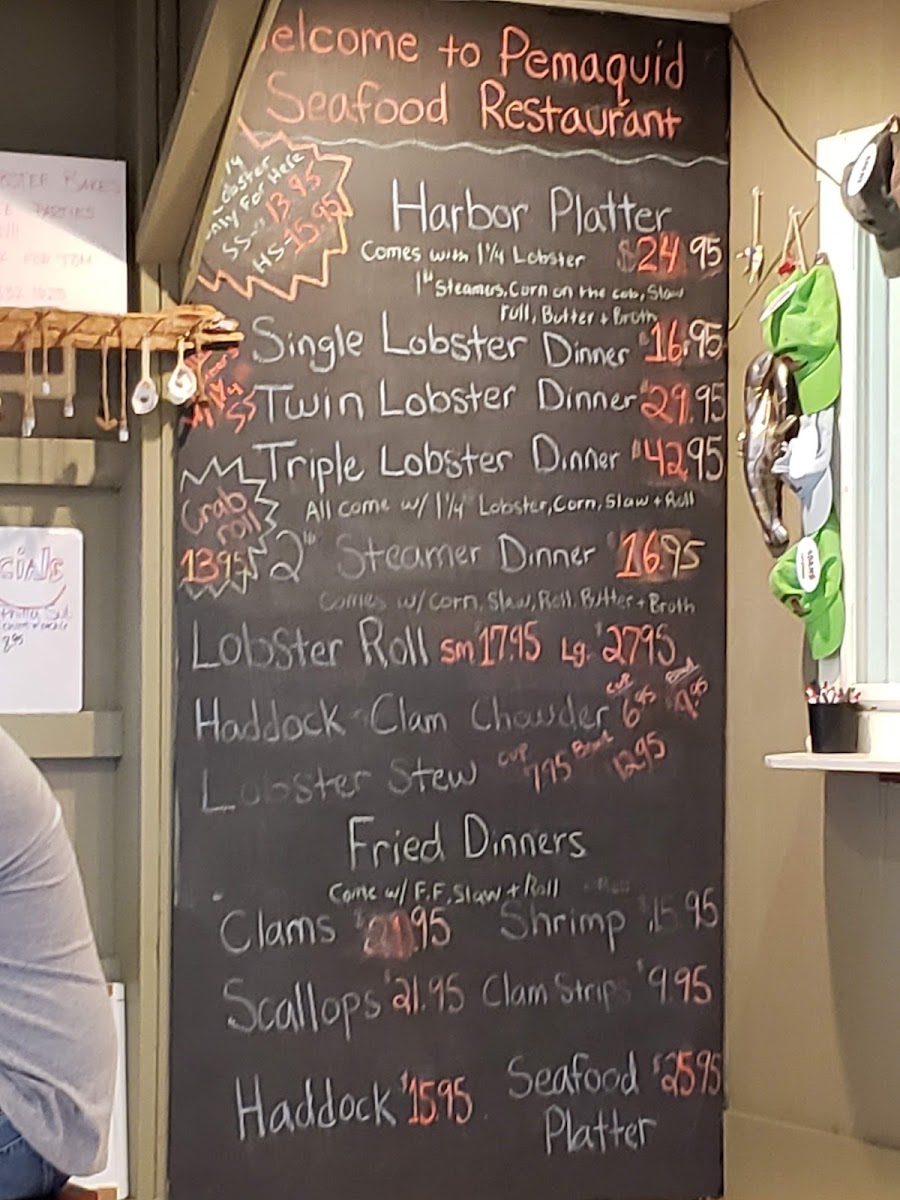 Welcome to Pemaquid
Seafood Restaurant
1¼
Lobster
Only For Here
SS- 13.95
HS- 15.95
Harbor Platter $24.95
Comes with 1¼ Lobster
1lb Steamers, Corn on the cob, Slaw
roll, Butter + Broth
Single Lobster Dinner $16.95
Twin Lobster Dinner $29.95
Triple Lobster Dinner $42.95
All come w/ 1¼ Lobster, Corn, Slaw + Roll
Crab
roll
13.95
2lb Steamer Dinner $16.95
Comes w/ Corn, Slaw, Roll, Butter + Broth
Lobster Roll Sm 17.95 Lg. $27.95
Haddock Clam Chowder cup 6.95 Bowl 9.95
Lobster Stew cup 7.95 Bowl 12.95
Fried Dinners
Come w/ F.F, Slaw + Roll
Clams $21.95 Shrimp $15.95
Scallops $21.95 Clam Strips $9.95
Haddock $15.95 Seafood $25.95
Platter
BSTER BAKES
PARTIES
FOR TOM
cials